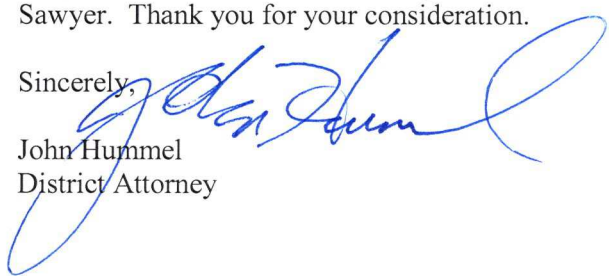 Sawyer.  Thank you for your consideration.
Sincerely,
John Hummel
John Hummel
District Attorney